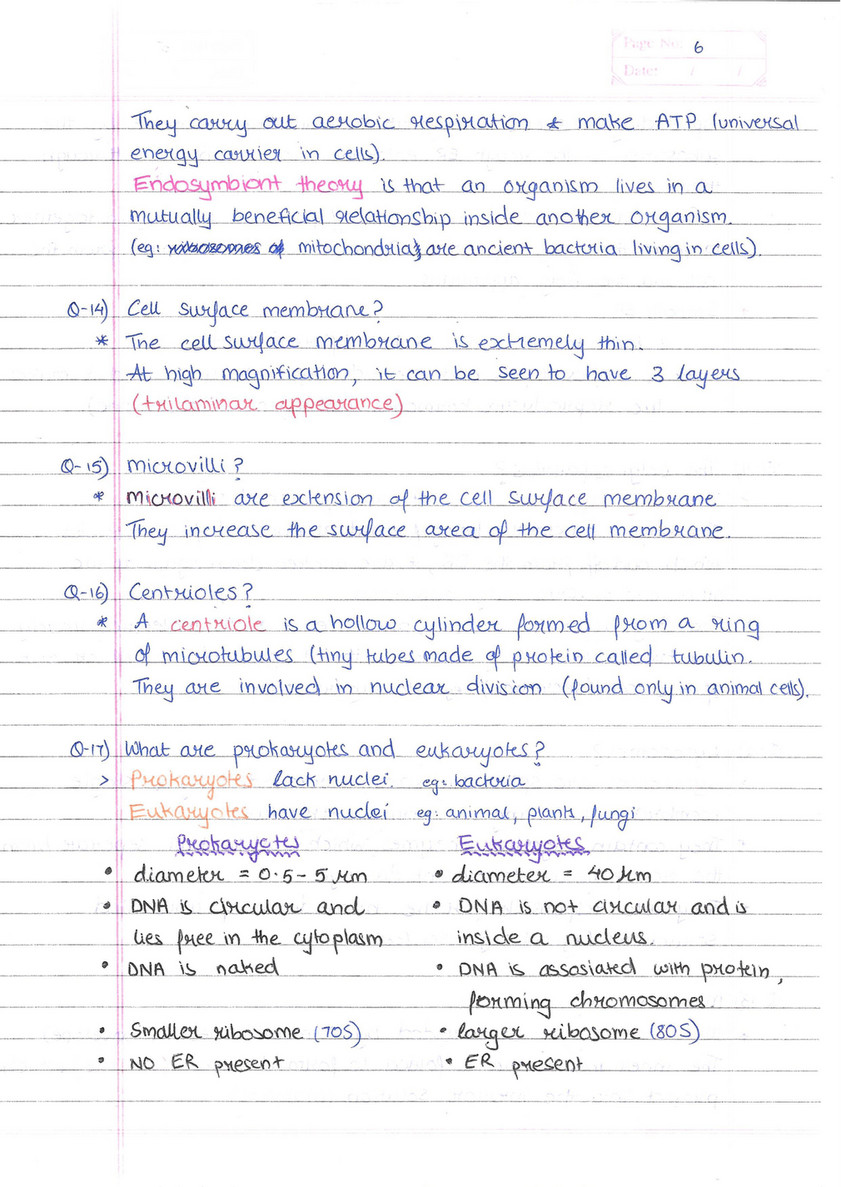 Page No. 6
Date: / /
They carry out aerobic respiration & make ATP (universal
energy carrier in cells).
Endosymbiont theory is that an organism lives in a
mutually beneficial relationship inside another organism.
(eg: mitochondria are ancient bacteria living in cells).
Q-14) Cell surface membrane?
* The cell surface membrane is extremely thin.
At high magnification, it can be seen to have 3 layers
(trilaminar appearance)
Q-15) microvilli?
* microvilli are extension of the cell surface membrane
They increase the surface area of the cell membrane.
Q-16) Centrioles?
* A centriole is a hollow cylinder formed from a ring
of microtubules (tiny tubes made of protein called tubulin.
They are involved in nuclear division (found only in animal cells).
Q-17) What are prokaryotes and eukaryotes?
> Prokaryotes lack nuclei. eg: bacteria
Eukaryotes have nuclei eg: animal, plants, fungi
Prokaryotes Eukaryotes
• diameter = 0.5-5 μm • diameter = 40 μm
• DNA is circular and • DNA is not circular and is
lies free in the cytoplasm inside a nucleus.
• DNA is naked • DNA is assosiated with protein,
forming chromosomes.
• Smaller ribosome (70S) • larger ribosome (80S)
• NO ER present • ER present